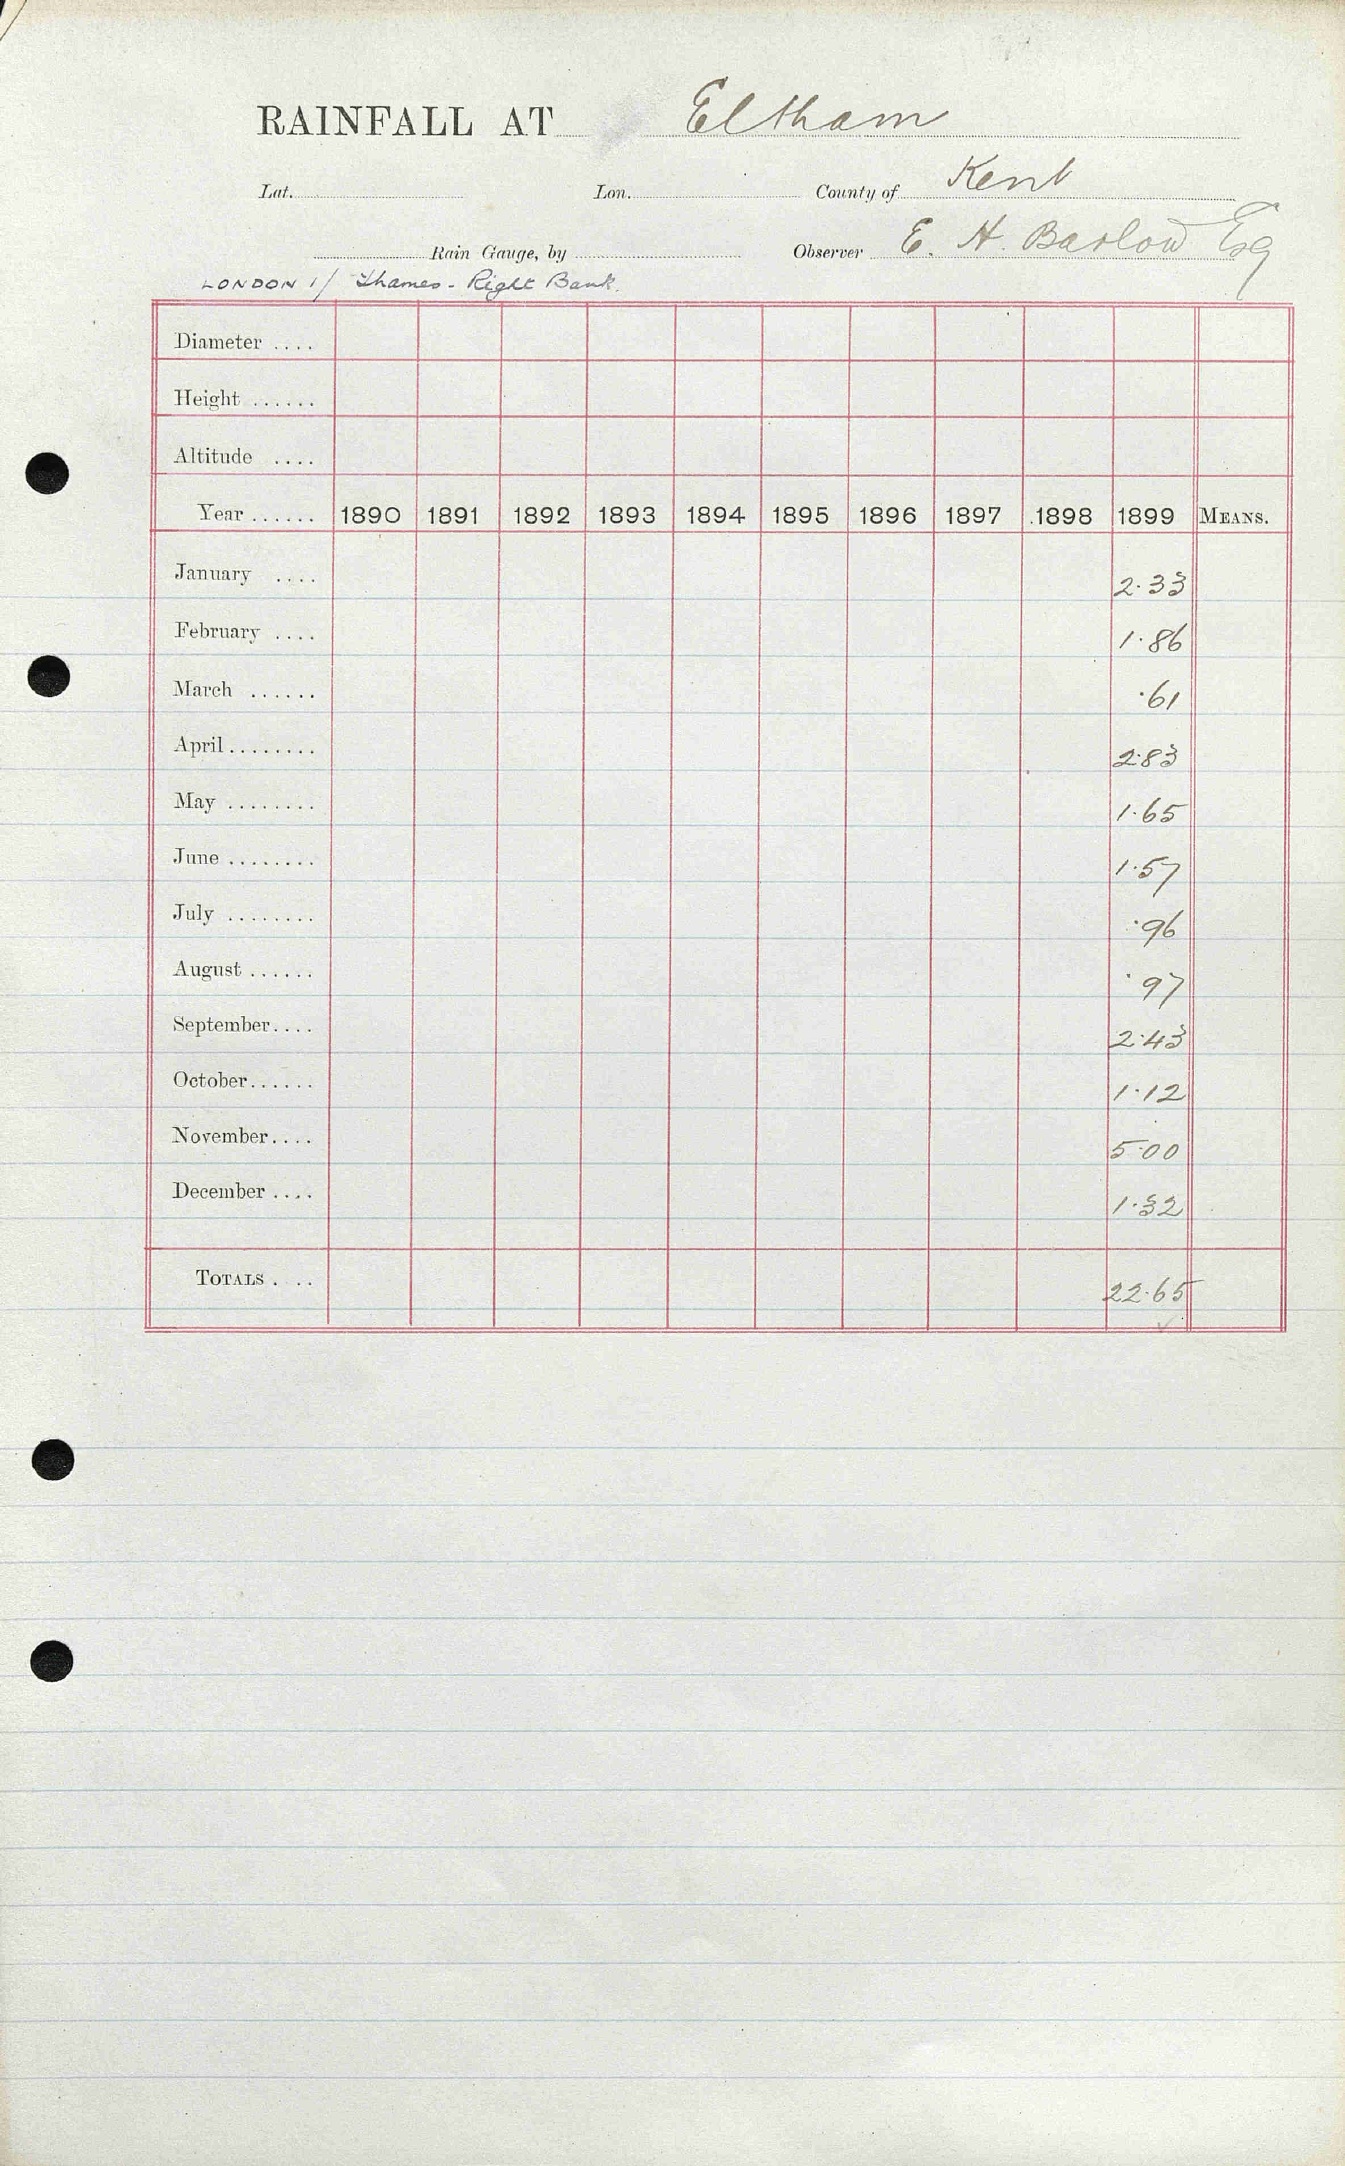 RAINFALL AT Eltham
Lat. Lon. County of Kent
Rain Gauge, by Observer E. H. Barlow Esq
LONDON 1/ Thames - Right Bank.
Diameter ....
Height ......
Altitude ....
Year ...... 1890 1891 1892 1893 1894 1895 1896 1897 1898 1899 MEANS.
January .... 2.33
February .... 1.86
March ...... .61
April ........ 2.83
May ........ 1.65
June ........ 1.57
July ........ .96
August ...... .97
September .... 2.43
October ...... 1.12
November .... 5.00
December .... 1.32
TOTALS . .. 22.65